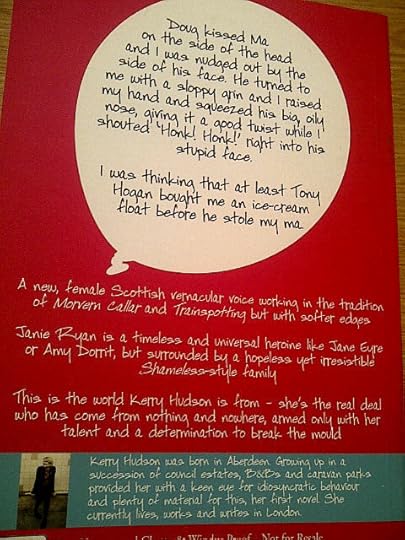 Doug kissed Ma
on the side of the head
and I was nudged out by the
side of his face. He turned to
me with a sloppy grin and I raised
my hand and squeezed his big, oily
nose, giving it a good twist while I
shouted 'Honk! Honk!' right into his
stupid face.
I was thinking that at least Tony
Hogan bought me an ice-cream
float before he stole my ma
A new, female Scottish vernacular voice working in the tradition
of Morvern Callar and Trainspotting but with softer edges
Janie Ryan is a timeless and universal heroine like Jane Eyre
or Amy Dorrit, but surrounded by a hopeless yet irresistible
Shameless-style family
This is the world Kerry Hudson is from - she's the real deal
who has come from nothing and nowhere, armed only with her
talent and a determination to break the mould
Kerry Hudson was born in Aberdeen. Growing up in a
succession of council estates, B&Bs and caravan parks
provided her with a keen eye for idiosyncratic behaviour
and plenty of material for this, her first novel. She
currently lives, works and writes in London.
& Windus Proof - Not for Resale